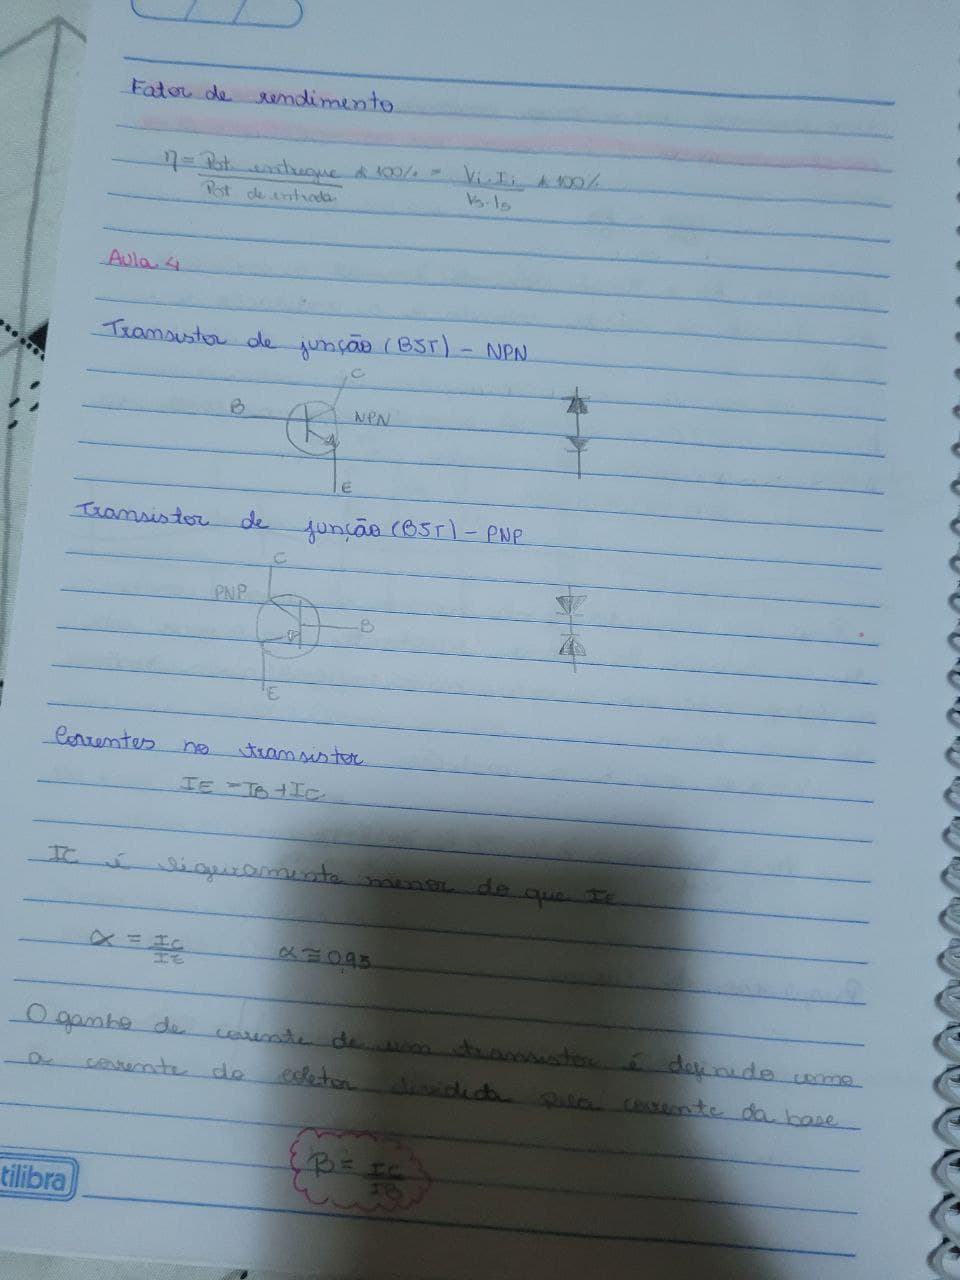 Fator de rendimento
η = Pot entregue * 100% = Vi.Ii * 100%
Pot de entrada
Aula 4
Transistor de junção (BJT) - NPN
C
B
NPN
E
Transistor de junção (BJT) - PNP
C
PNP
B
E
Correntes no transistor
IE = IB + IC
IC é ligeiramente menor do que IE
α = IC/IE α ≅ 0,95
O ganho de corrente de um transistor é definido como
a corrente do coletor dividida pela corrente da base
tilibra
β = IC/IB